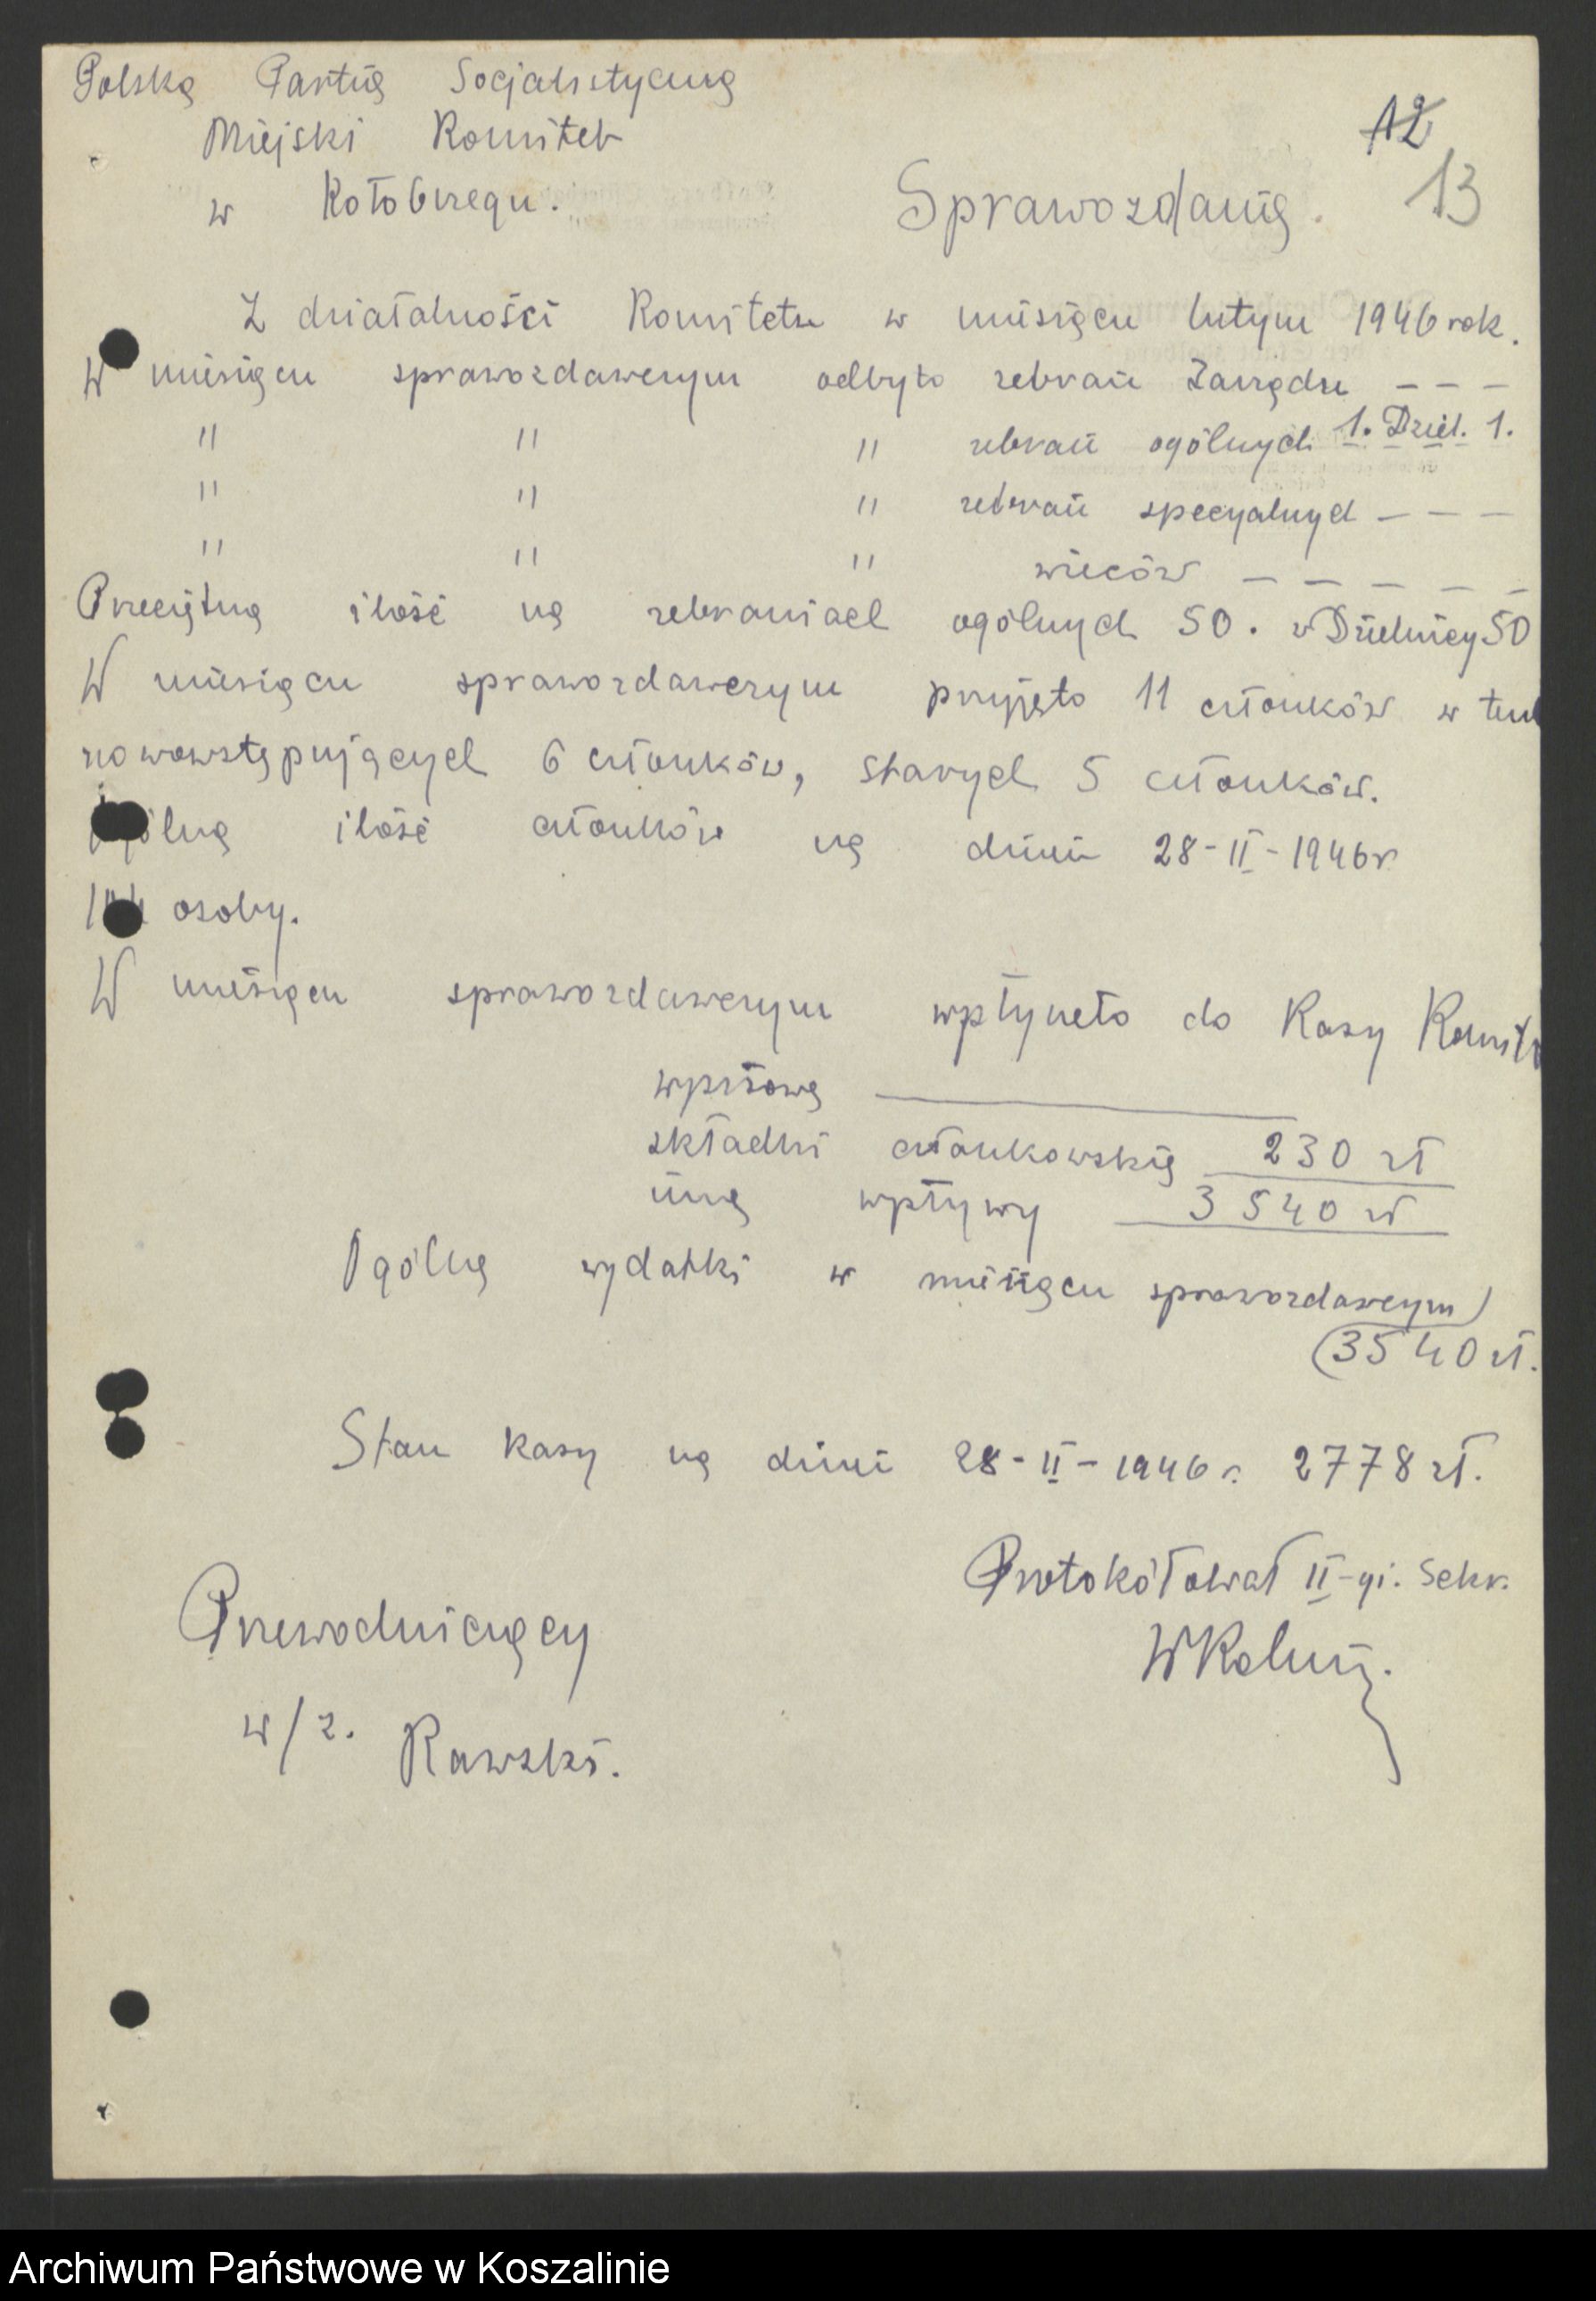 Polska Partia Socjalistyczna
Miejski Komitet
w Kołobrzegu.
12
13
Sprawozdanie.
Z działalności Komitetu w miesiącu lutym 1946 rok.
W miesiącu sprawozdawczym odbyto zebrań Zarządu – – –
" " " zebrań ogólnych 1. Dziel. 1.
" " " zebrań specyalnych – – –
" " " wieców – – – – –
Przeciętna ilość na zebraniach ogólnych 50. w Dzielnicy 50
W miesiącu sprawozdawczym przyjęto 11 członków w tem
nowowstępujących 6 członków, starych 5 członków.
Ogólna ilość członków na dzień 28-II-1946 r
osoby.
W miesiącu sprawozdawczym wpłyneło do Kasy Komit
wpisowe
składki członkowskie 230 zł
inne wpływy 3540 zł
Ogólne wydatki w miesiącu sprawozdawczym
3540 zł.
Stan kasy na dzień 28-II-1946 r. 2778 zł.
Protokółował II-gi. Sekr.
Przewodniczący
w/z. Rawski.
Archiwum Państwowe w Koszalinie